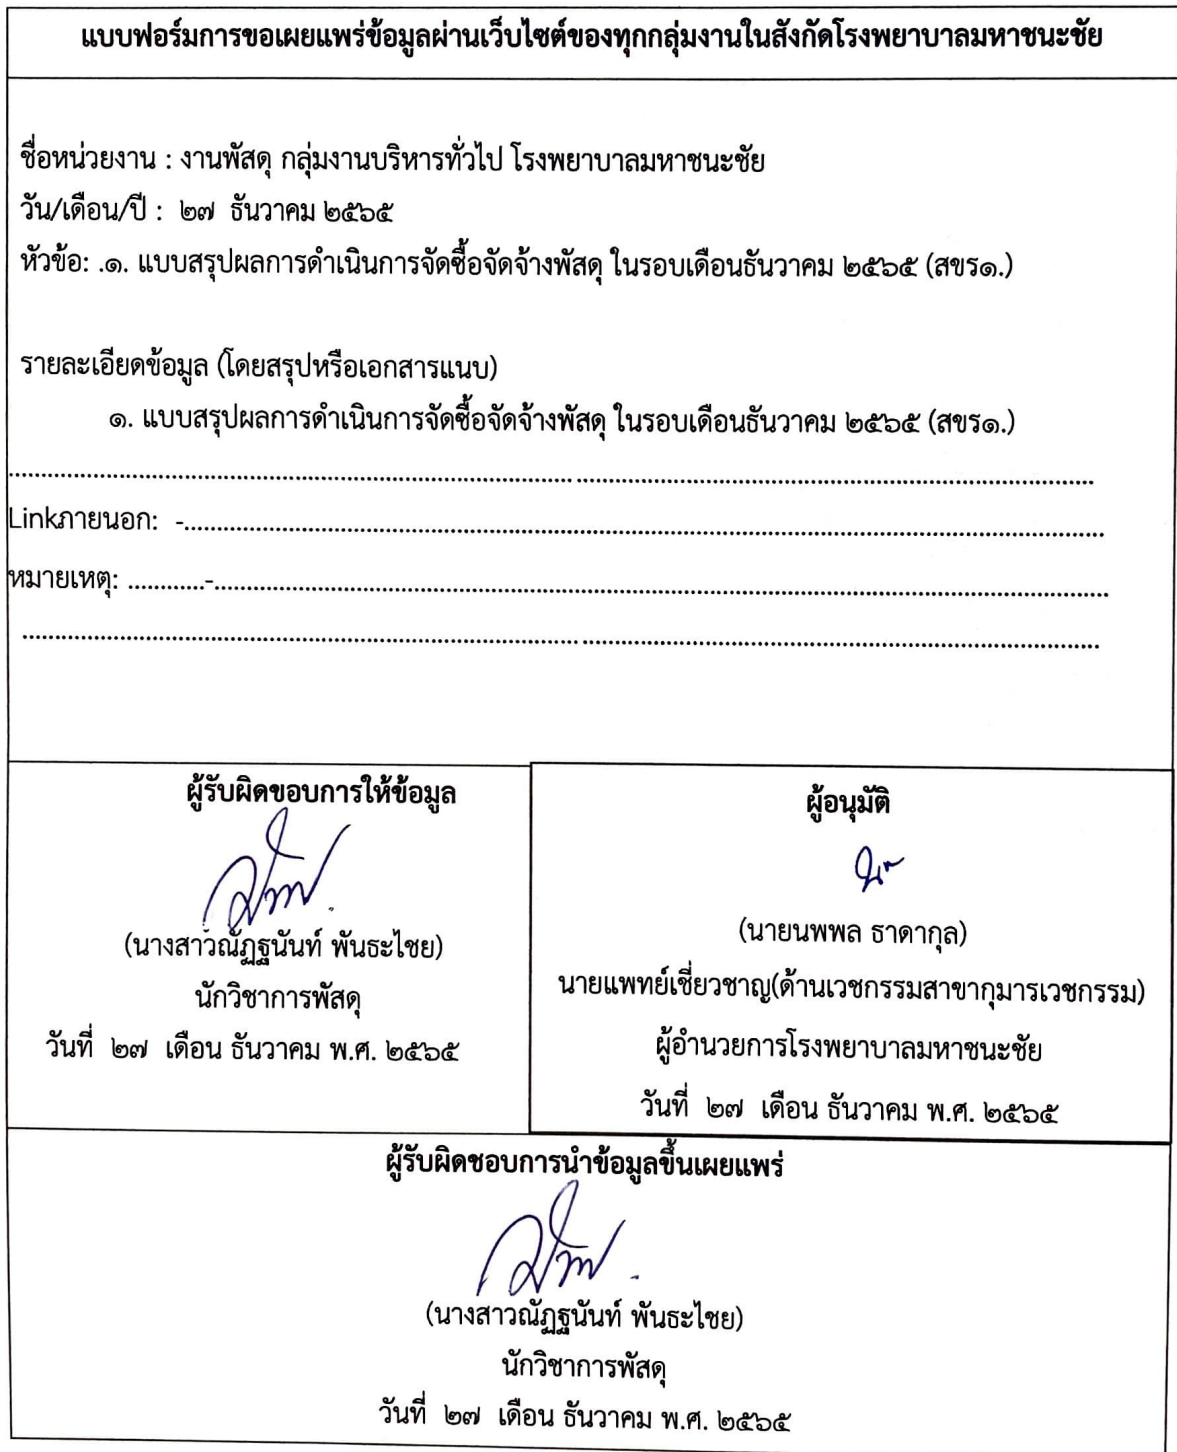 แบบฟอร์มการขอเผยแพร่ข้อมูลผ่านเว็บไซต์ของทุกกลุ่มงานในสังกัดโรงพยาบาลมหาชนะชัย
ชื่อหน่วยงาน : งานพัสดุ กลุ่มงานบริหารทั่วไป โรงพยาบาลมหาชนะชัย
วัน/เดือน/ปี : ๒๗ ธันวาคม ๒๕๖๕
หัวข้อ: .๑. แบบสรุปผลการดำเนินการจัดซื้อจัดจ้างพัสดุ ในรอบเดือนธันวาคม ๒๕๖๕ (สขร๑.)
รายละเอียดข้อมูล (โดยสรุปหรือเอกสารแนบ)
๑. แบบสรุปผลการดำเนินการจัดซื้อจัดจ้างพัสดุ ในรอบเดือนธันวาคม ๒๕๖๕ (สขร๑.)
Linkภายนอก: -
หมายเหตุ: ............-
ผู้รับผิดขอบการให้ข้อมูล
(นางสาวณัฏฐนันท์ พันธะไชย)
นักวิชาการพัสดุ
วันที่ ๒๗ เดือน ธันวาคม พ.ศ. ๒๕๖๕
ผู้อนุมัติ
(นายนพพล ธาดากุล)
นายแพทย์เชี่ยวชาญ(ด้านเวชกรรมสาขากุมารเวชกรรม)
ผู้อำนวยการโรงพยาบาลมหาชนะชัย
วันที่ ๒๗ เดือน ธันวาคม พ.ศ. ๒๕๖๕
ผู้รับผิดชอบการนำข้อมูลขึ้นเผยแพร่
(นางสาวณัฏฐนันท์ พันธะไชย)
นักวิชาการพัสดุ
วันที่ ๒๗ เดือน ธันวาคม พ.ศ. ๒๕๖๕